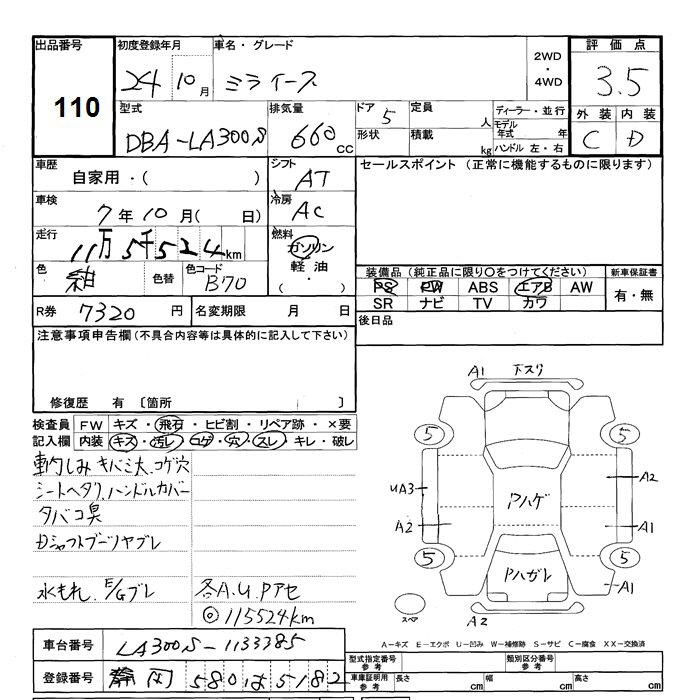 出品番号 初度登録年月 車名・グレード 評価点
110
24 10月 ミライース 2WD ・ 4WD 3.5
型式 排気量 ドア 5 定員 人 ディーラー・並行 外装 内装
DBA-LA300S 660cc 形状 積載 kg モデル年式 年 ハンドル 左・右 C D
車歴 シフト セールスポイント (正常に機能するものに限ります)
自家用・( ) AT
車検 冷房
7年10月( 日) AC
走行 燃料
11万5千524km ガソリン
色 色替 色コード 軽油
紺 B70 ・ ( )
装備品 (純正品に限り〇をつけてください) 新車保証書
PS PW ABS エアB AW 有・無
SR ナビ TV カワ
R券 7320円 名変期限 月 日
後日品
注意事項申告欄 (不具合内容等は具体的に記入して下さい)
修復歴 有 〔箇所 〕
検査員 FW キズ・飛石・ヒビ割・リペア跡・×要
記入欄 内装 キズ・汚レ・コゲ・穴・スレ・キレ・破レ
シミ キバミ大、コゲ穴
シートヘタリ、ハンドルカバー
タバコ臭
Dシャフトブーツヤブレ
水もれ、E/Gブレ 各A.U.Pアセ
◎115524km
A1 下スリ
5 5
UA3 A2
Pハゲ
A2 A1
5 5
Pハガレ A1
スペア A2
A-キズ E-エクボ U-凹み W-補修跡 S-サビ C-腐食 XX-交換済
車台番号 LA300S-1133785
型式指定番号 参考 類別区分番号 参考
登録番号 静岡 580 は 5182
車庫証明用 参考 長さ cm 幅 cm 高さ cm